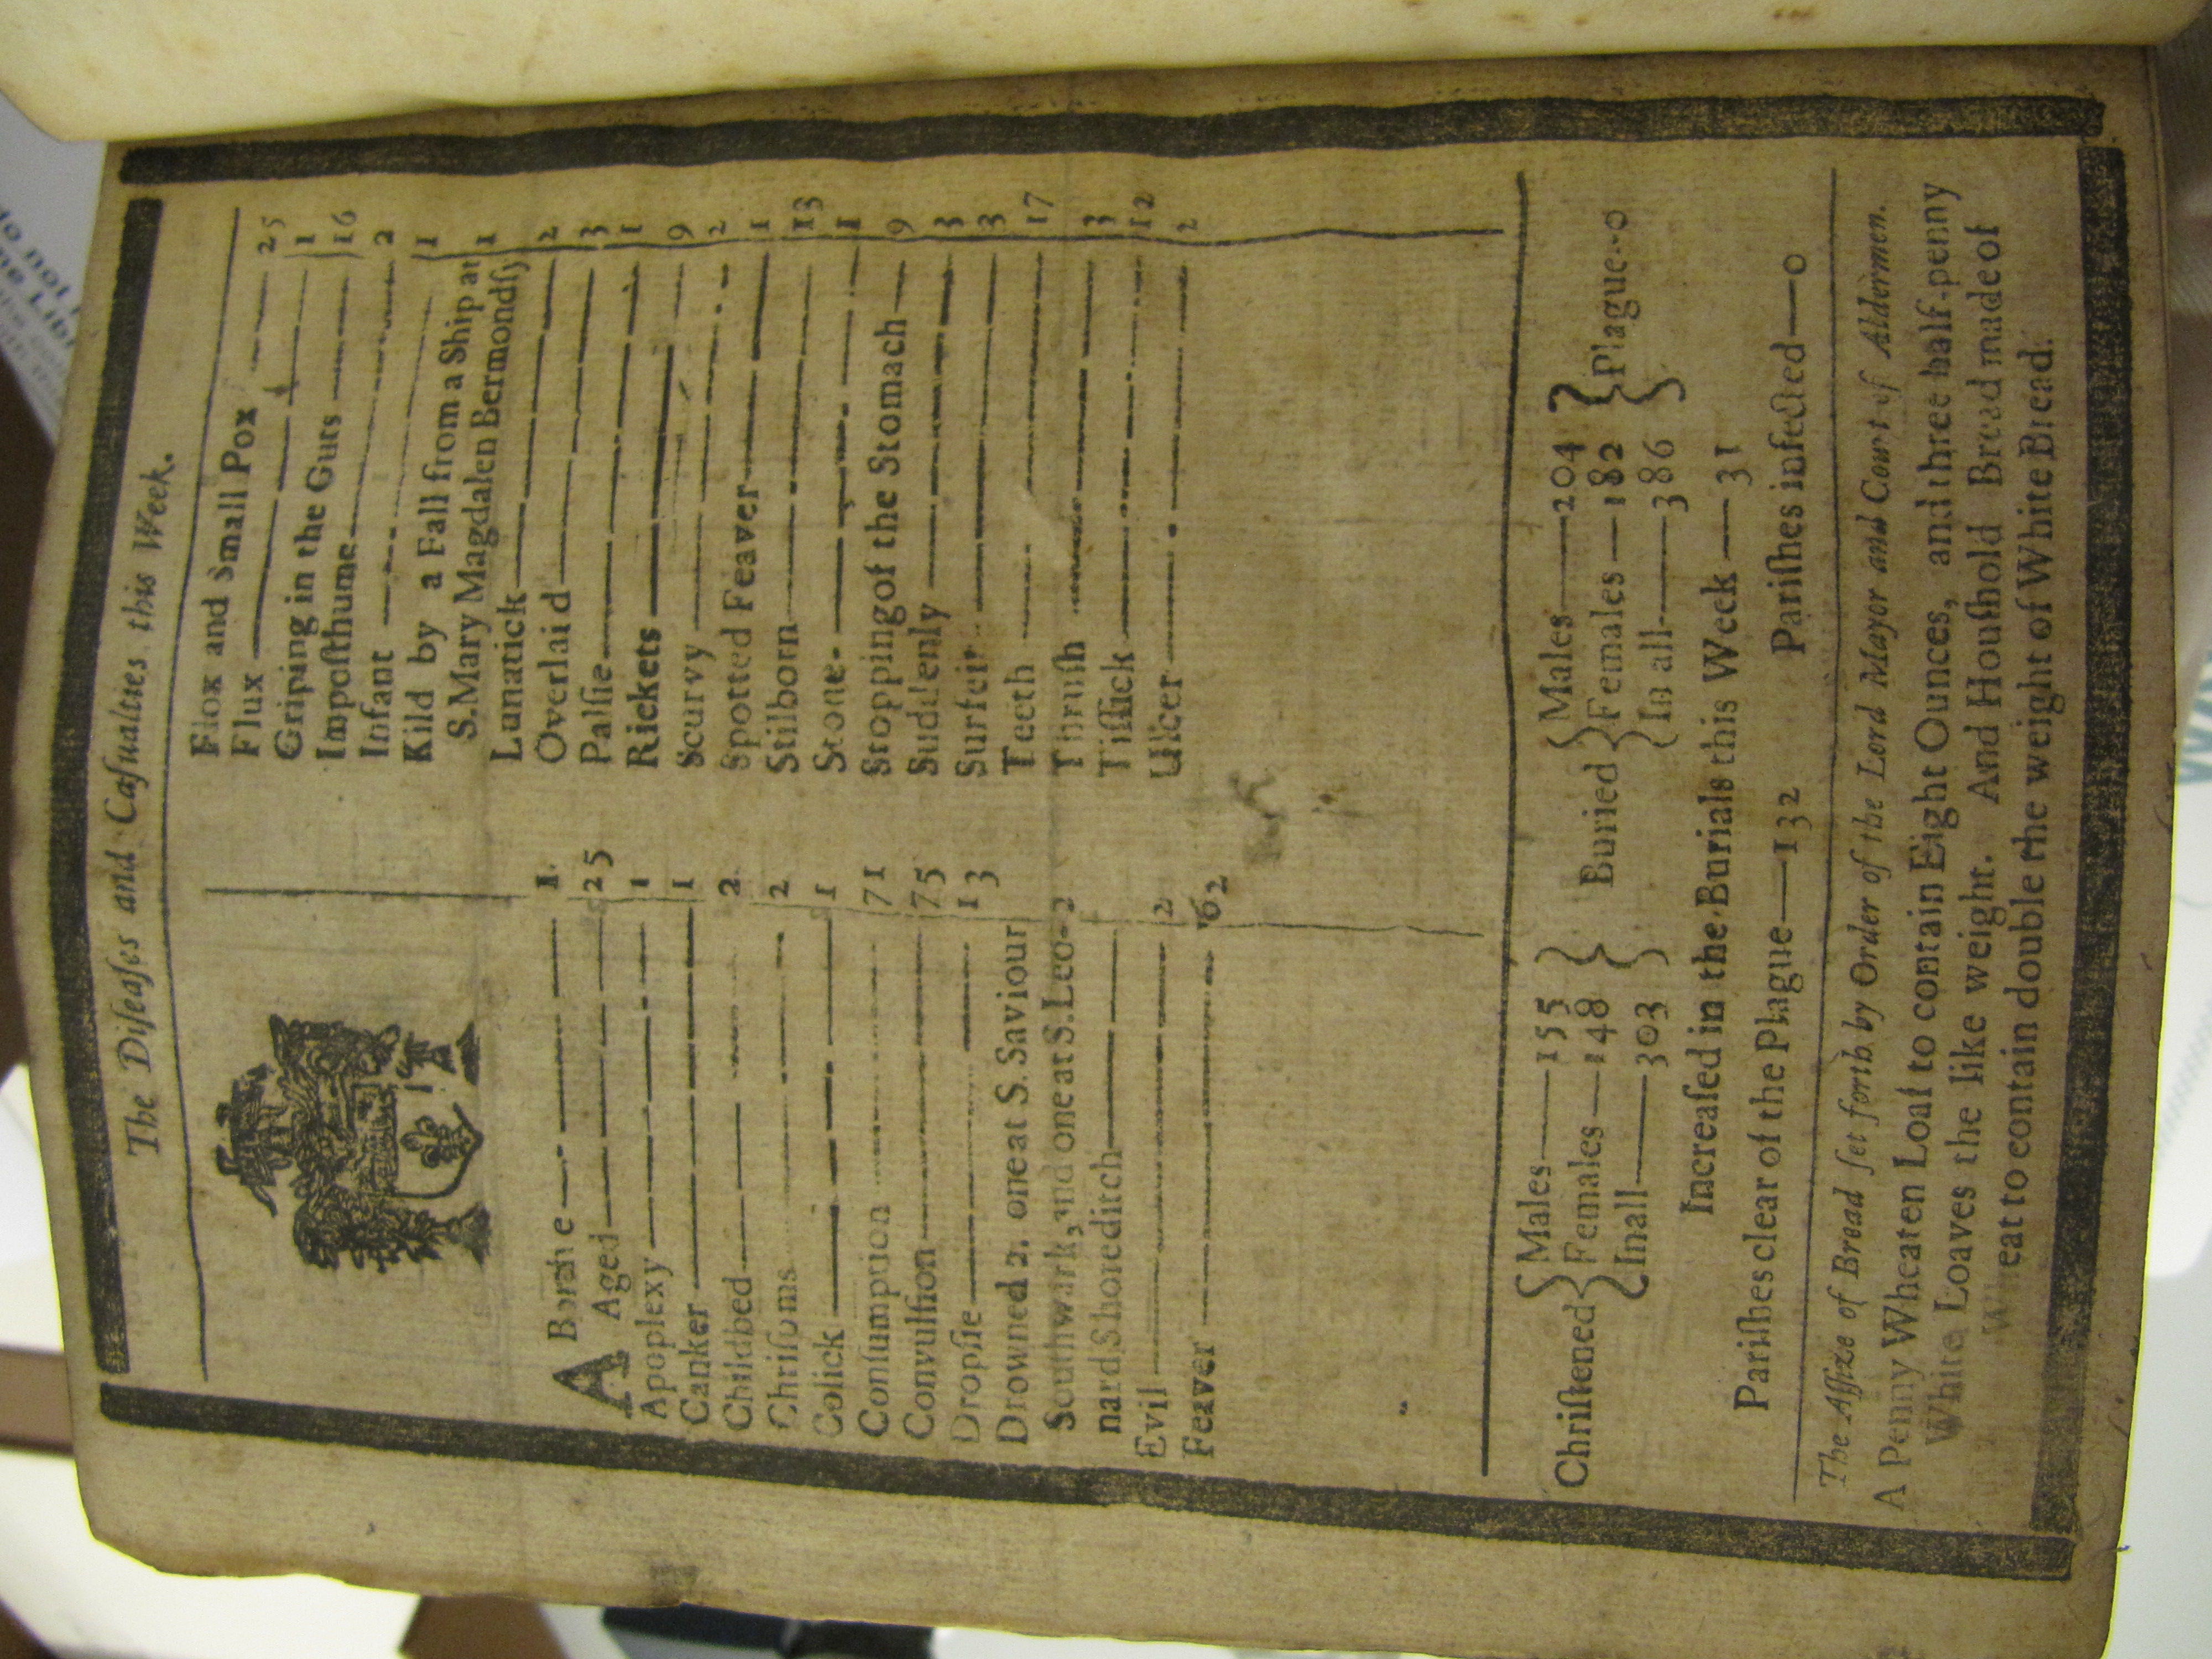 The Diſeaſes and Caſualties this Week.
Abortive 1
Aged 25
Apoplexy 1
Canker 1
Childbed 2
Chriſoms 2
Colick 1
Conſumption 71
Convulſion 75
Dropſie 13
Drowned 2. one at S. Saviour
Southwark, and one at S. Leo- 2
nard Shoreditch
Evil 2
Feaver 62
Flox and Small Pox 25
Flux 1
Griping in the Guts 16
Impoſthume 2
Infant 1
Kild by a Fall from a Ship at
S. Mary Magdalen Bermondſy 1
Lunatick 2
Overlaid 3
Palſie 1
Rickets 9
Scurvy 2
Spotted Feaver 1
Stilborn 13
Stone 1
Stopping of the Stomach 9
Suddenly 3
Surfeit 3
Teeth 17
Thruſh 3
Tiſſick 12
Ulcer 2
Chriſtened { Males 155 Females 148 In all 303 }
Buried { Males 204 Females 182 In all 386 } Plague 0
Increaſed in the Burials this Week 31
Pariſhes clear of the Plague 132 Pariſhes infected 0
The Aſſize of Bread ſet forth by Order of the Lord Mayor and Court of Aldermen.
A Penny Wheaten Loaf to contain Eight Ounces, and three half-penny
White Loaves the like weight. And Houſhold Bread made of
Wheat to contain double the weight of White Bread.